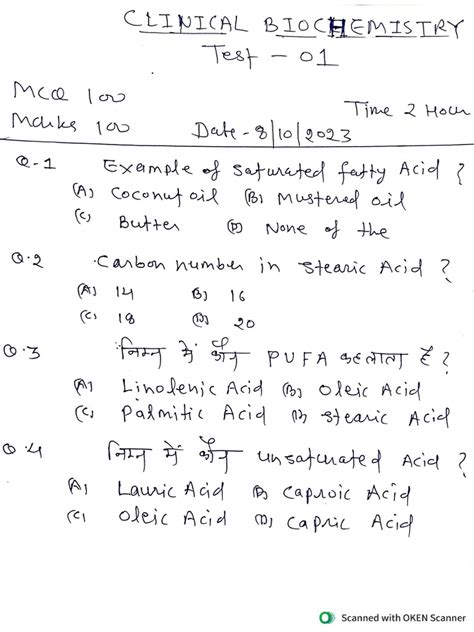 CLINICAL BIOCHEMISTRY
Test - 01
MCQ 100
Time 2 Hour
Marks 100
Date - 8/10/2023
Q-1 Example of saturated fatty Acid ?
(A) Coconut oil (B) Mustered oil
(C) Butter (D) None of the
Q.2 Carbon number in stearic Acid ?
(A) 14 B) 16
(C) 18 (D) 20
Q.3 निम्न में कौन PUFA कहलाता है ?
(A) Linolenic Acid (B) Oleic Acid
(C) Palmitic Acid (D) Stearic Acid
Q.4 निम्न में कौन unsaturated Acid ?
(A) Lauric Acid (B) Caproic Acid
(C) Oleic Acid (D) Capric Acid
Scanned with OKEN Scanner